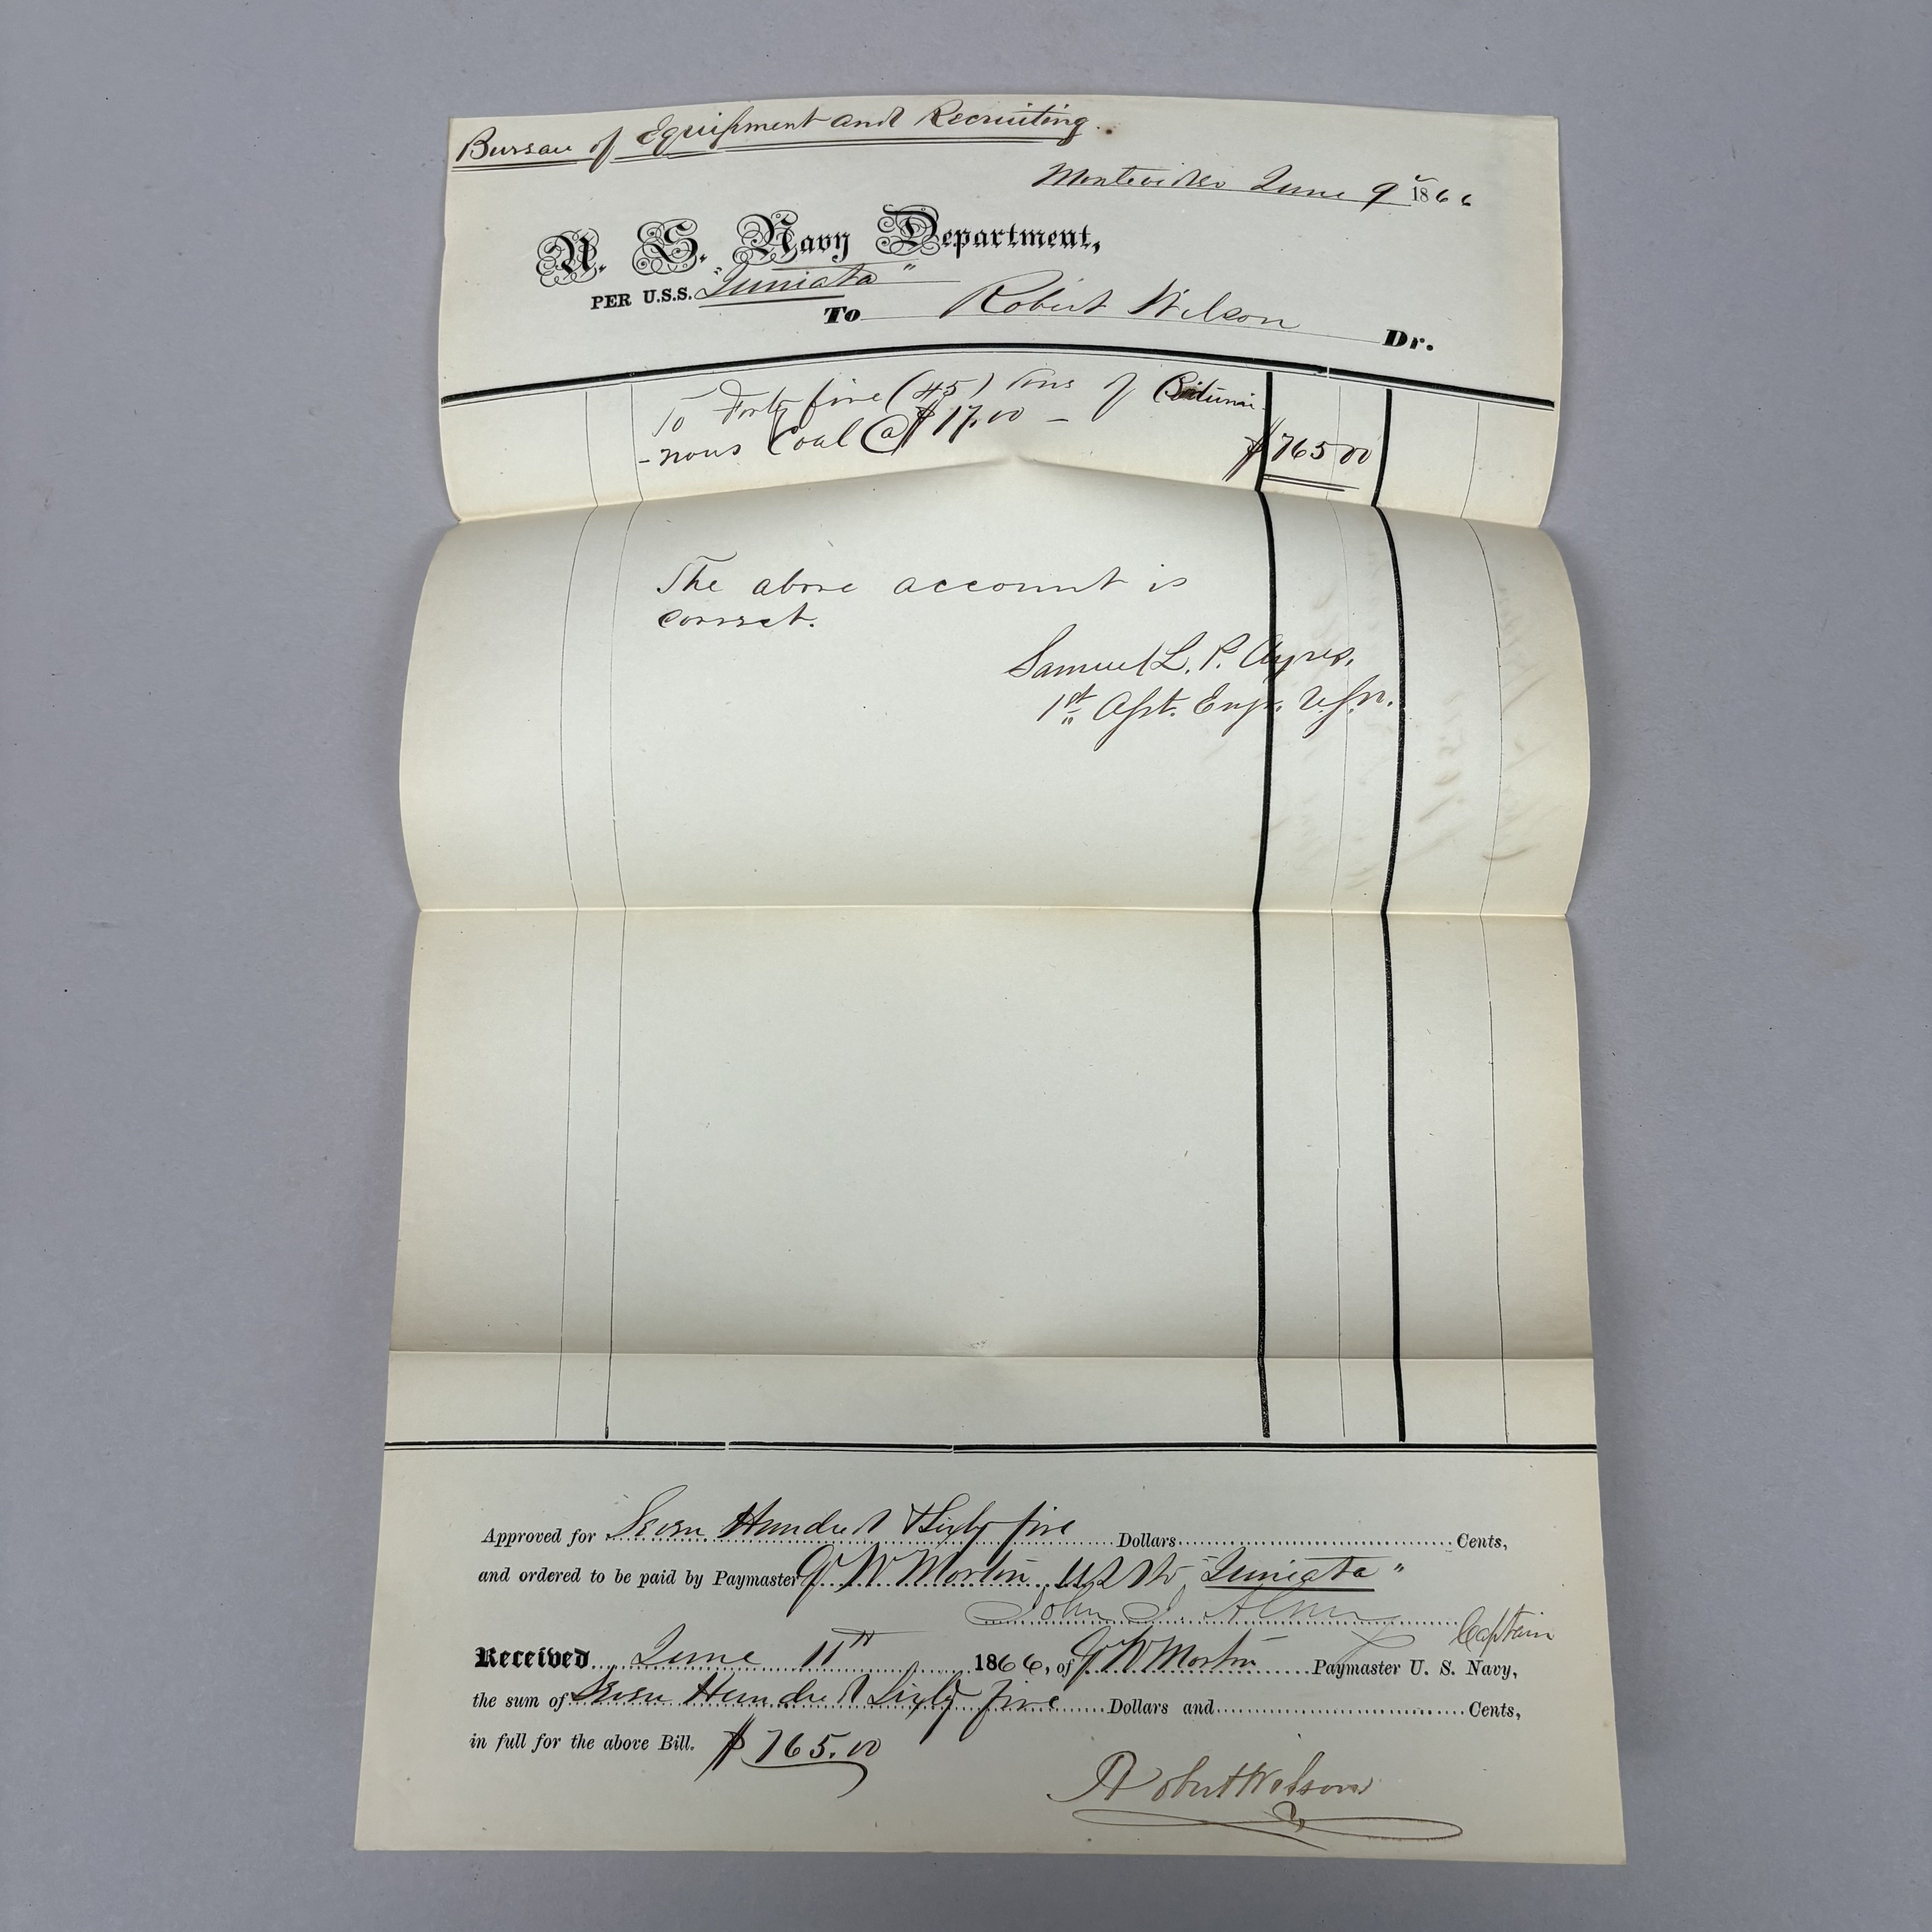 Bureau of Equipment and Recruiting.
Montevideo June 9th 1866
U. S. Navy Department,
PER U.S.S. "Juniata"
To Robert Wilson Dr.
To Forty five (45) Tons of Bitumi-
-nous Coal @ $17.00 - $765 00
The above account is
correct.
Samuel L. P. Ayres.
1st Asst. Engr. U.S.N.
Approved for Seven Hundred & Sixty five Dollars Cents,
and ordered to be paid by Paymaster J W Morton "Juniata"
John J. Almy
Captain
Received June 11th 1866, of J W Morton Paymaster U. S. Navy,
the sum of Seven Hundred Sixty five Dollars and Cents,
in full for the above Bill. $765.00
Robert Wilson